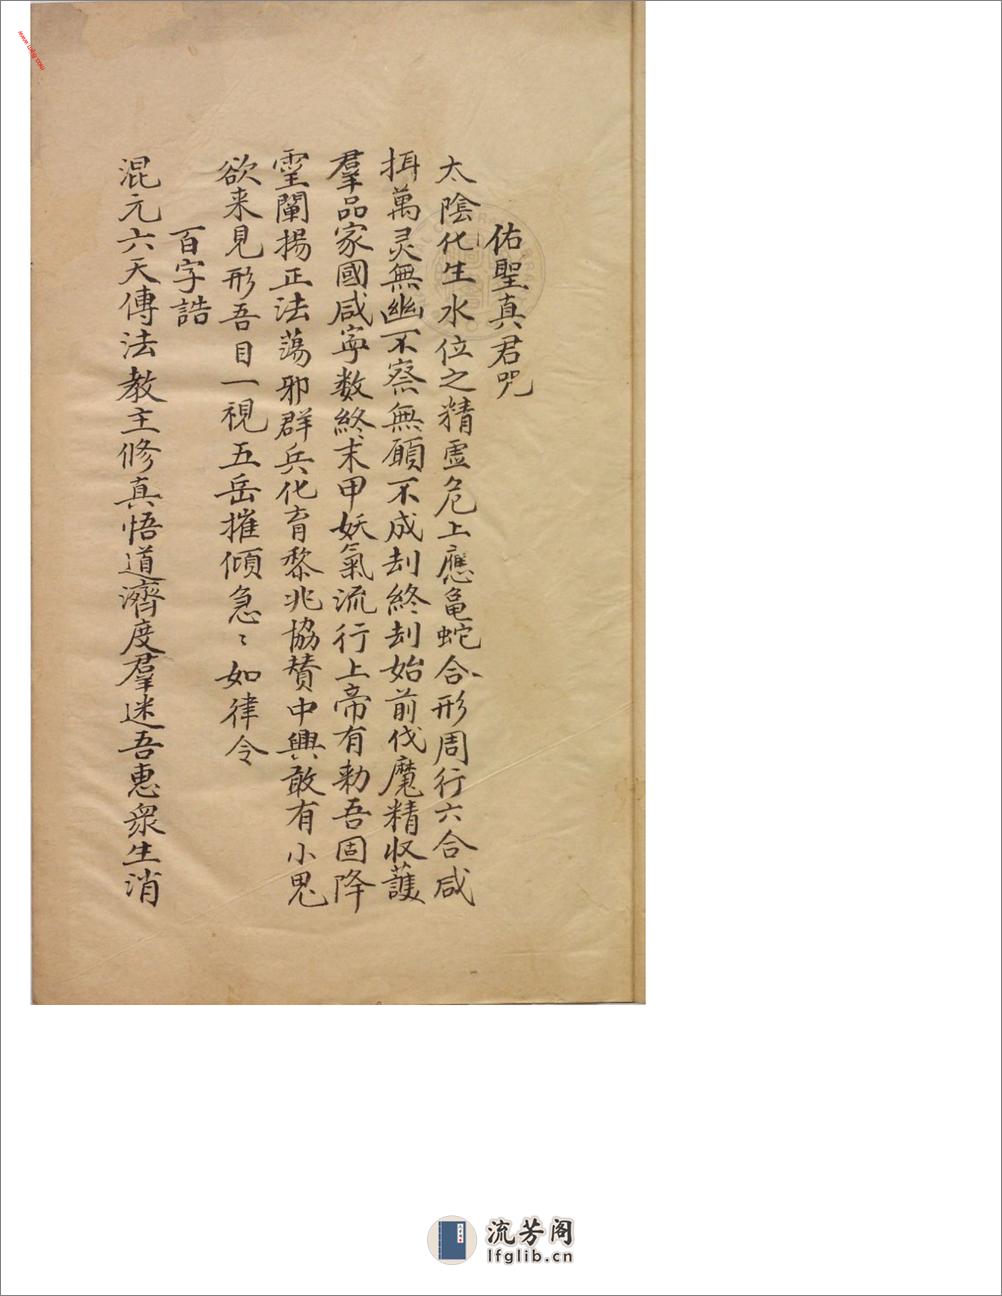 佑聖真君咒
太陰化生水位之精虛危上應龜蛇合形周行六合咸
揖萬灵無幽不察無願不成刦終刦始前伐魔精収護
羣品家國咸寧数終末甲妖氣流行上帝有勅吾固降
霊闡揚正法蕩邪群兵化育黎兆協賛中興敢有小鬼
欲来見形吾目一視五岳摧傾急〻如律令
百字誥
混元六天傳法教主修真悟道濟度羣迷吾惠衆生消
流芳阁
lfglib.cn